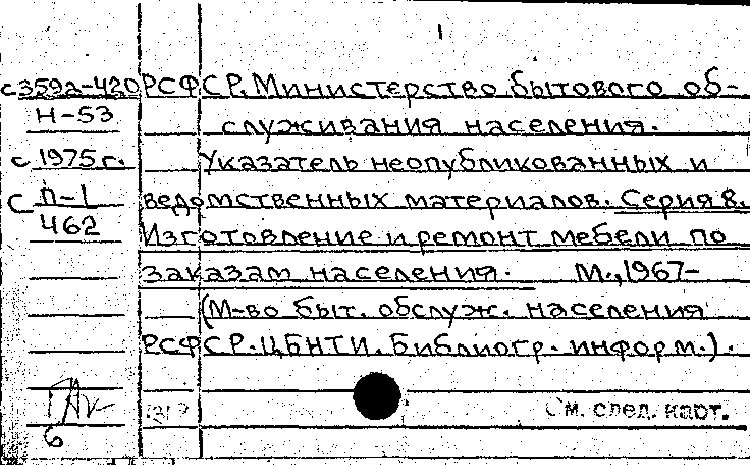 1
с359а-420 РСФСР. Министерство бытового об-
Н-53 служивания населения.
с 1975г. Указатель неопубликованных и
С П-1 ведомственных материалов. Серия 8.
462 Изготовление и ремонт мебели по
заказам населения. М., 1967-
(М-во быт. обслуж. населения
РСФСР. ЦБНТИ. Библиогр. информ.).
См. след. карт.
6